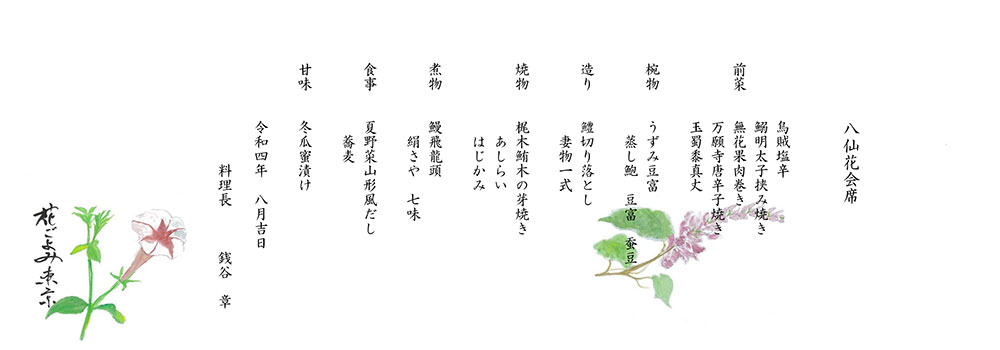 八仙花会席
前菜
烏賊塩辛
鰯明太子挟み焼き
無花果肉巻き
万願寺唐辛子焼き
玉蜀黍真丈
椀物
うずみ豆富
蒸し鮑 豆富 蚕豆
造り
鱧切り落とし
妻物一式
焼物
梶木鮪木の芽焼き
あしらい
はじかみ
煮物
鰻飛龍頭
絹さや 七味
食事
夏野菜山形風だし
蕎麦
甘味
冬瓜蜜漬け
令和四年 八月吉日
料理長 銭谷 章
花ごよみ東京